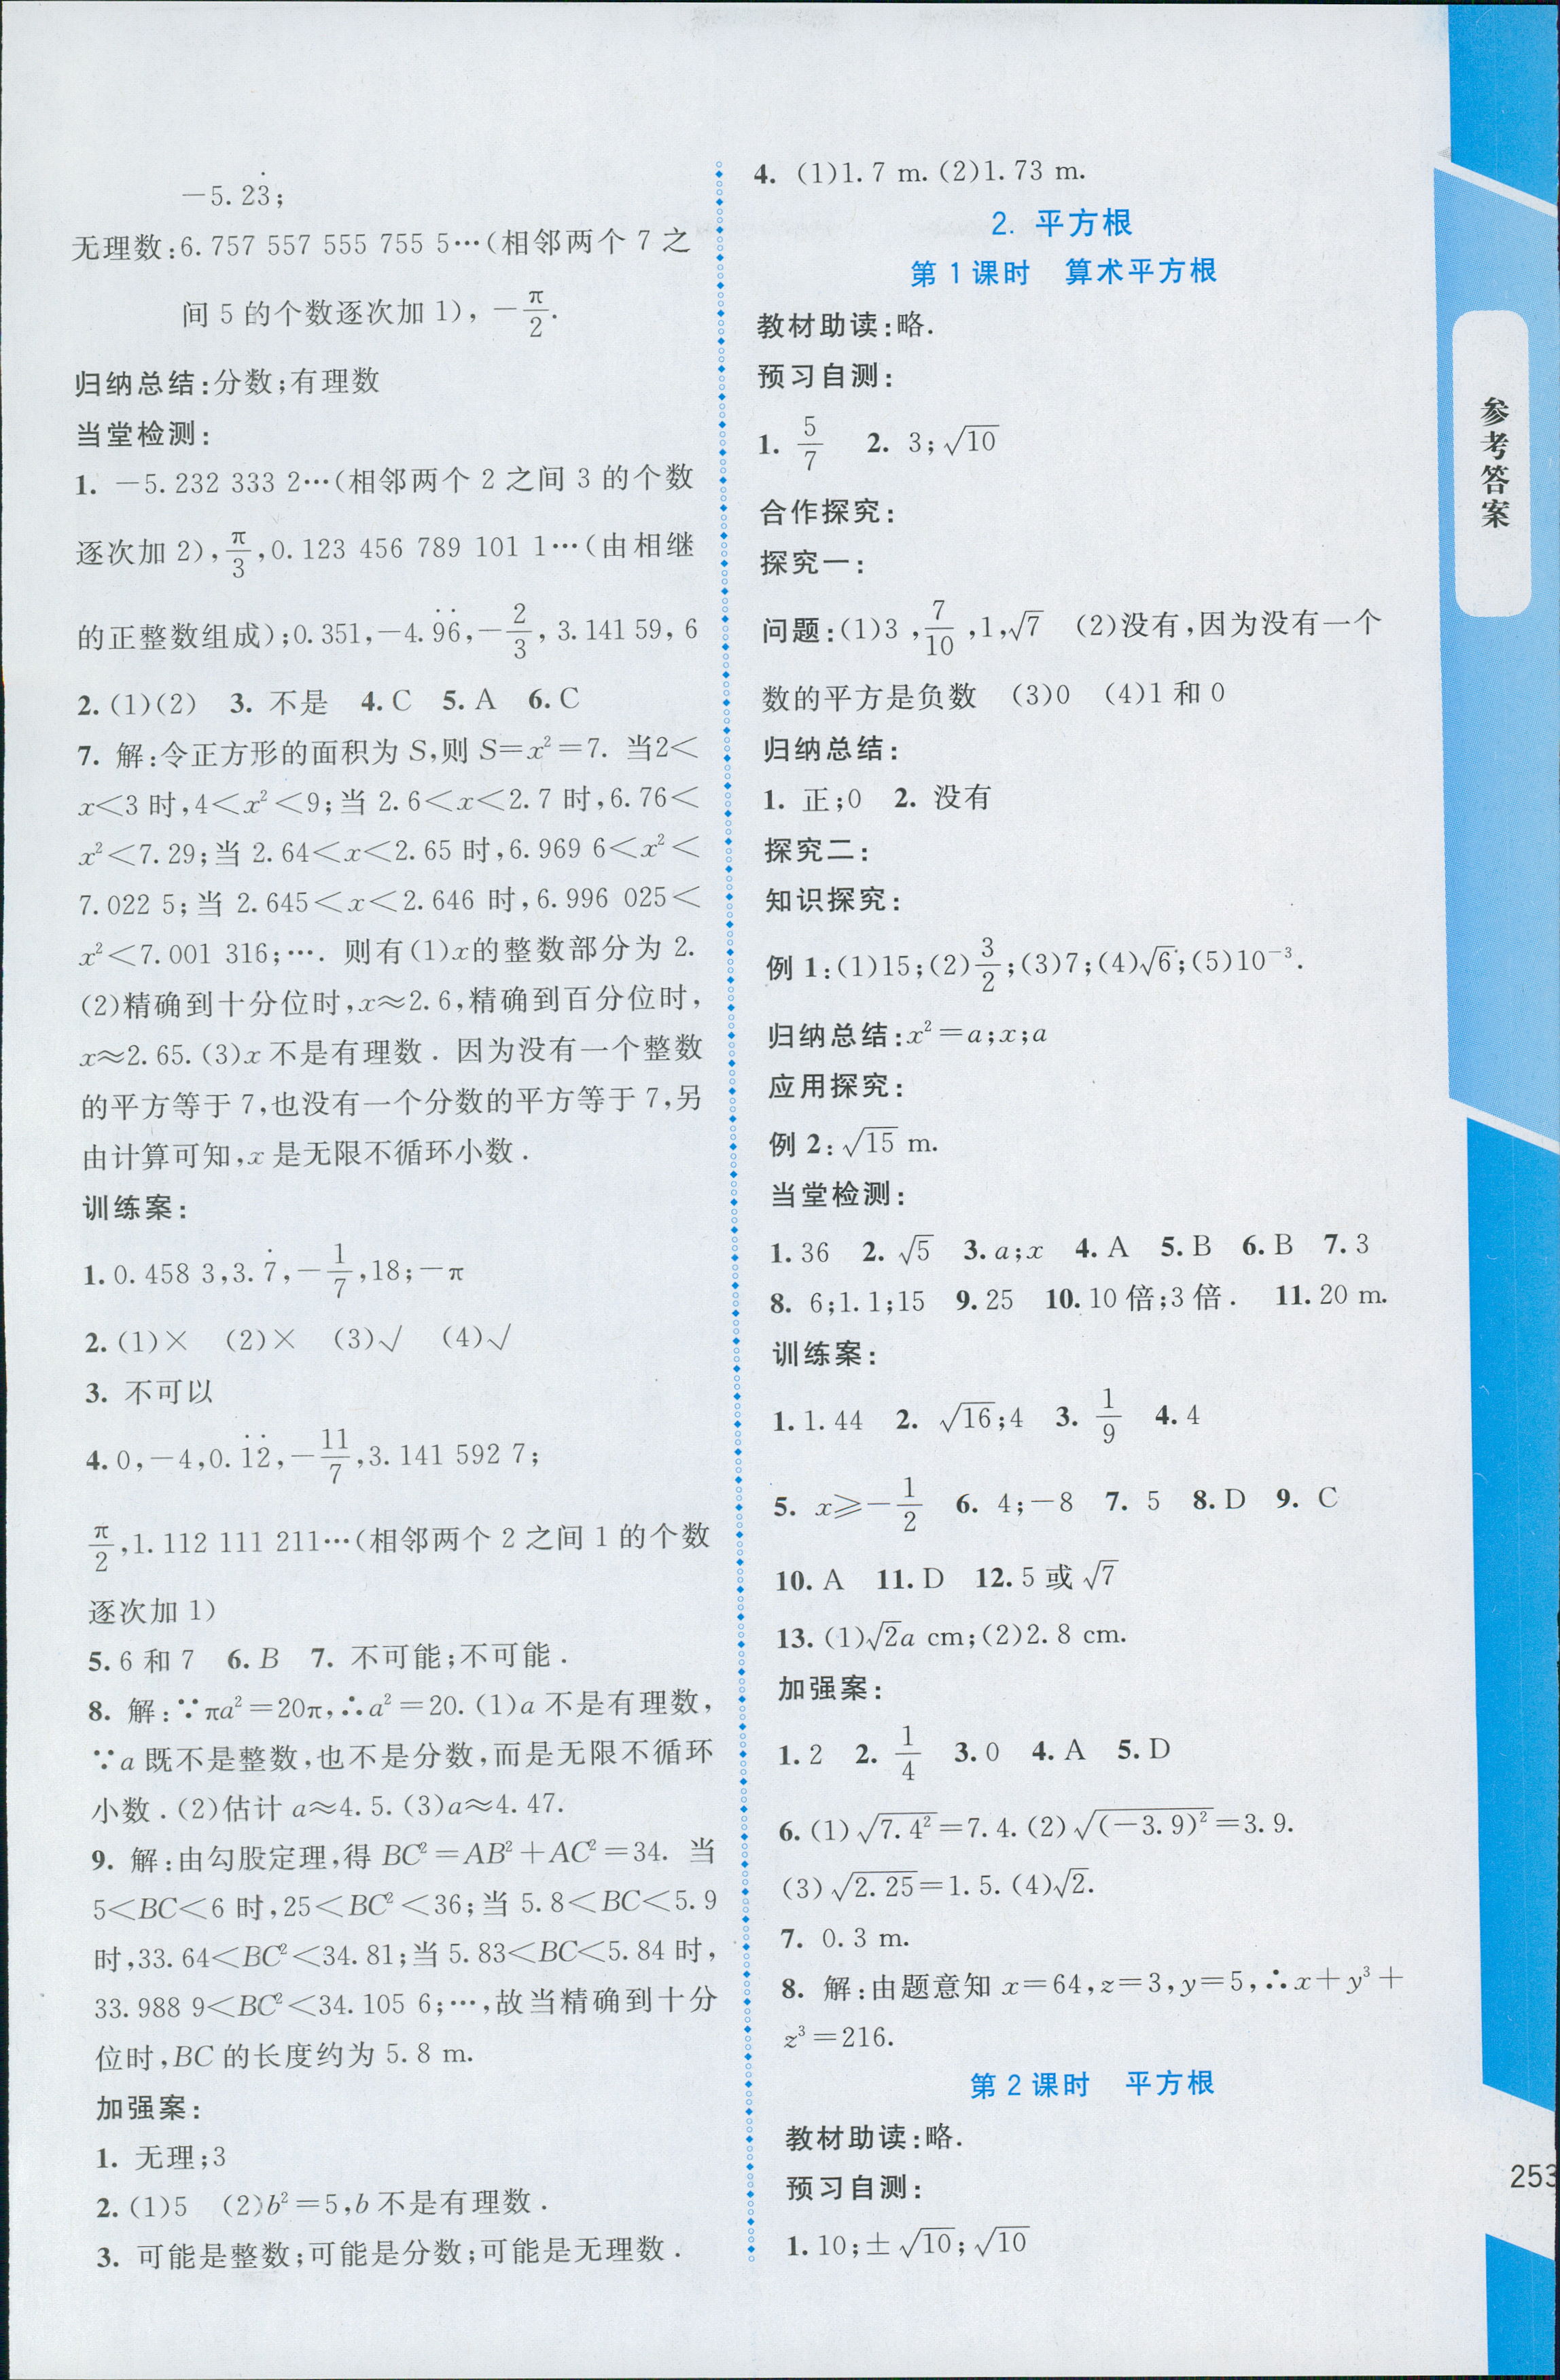 −5.23̇;
无理数:6.757 557 555 755 5…(相邻两个 7 之
间 5 的个数逐次加 1), −π/2.
归纳总结:分数;有理数
当堂检测:
1. −5.232 333 2…(相邻两个 2 之间 3 的个数
逐次加 2),π/3,0.123 456 789 101 1…(由相继
的正整数组成);0.351,−4.9̇6̇,−2/3, 3.141 59, 6
2. (1)(2) 3. 不是 4. C 5. A 6. C
7. 解:令正方形的面积为 S,则 S=x²=7. 当2<
x<3 时,4<x²<9;当 2.6<x<2.7 时,6.76<
x²<7.29;当 2.64<x<2.65 时,6.969 6<x²<
7.022 5;当 2.645<x<2.646 时,6.996 025<
x²<7.001 316;…. 则有(1)x的整数部分为 2.
(2)精确到十分位时,x≈2.6,精确到百分位时,
x≈2.65.(3)x 不是有理数. 因为没有一个整数
的平方等于 7,也没有一个分数的平方等于 7,另
由计算可知,x 是无限不循环小数.
训练案:
1. 0.458 3,3.7̇,−1/7,18;−π
2. (1)× (2)× (3)√ (4)√
3. 不可以
4. 0,−4,0.1̇2̇,−11/7,3.141 592 7;
π/2,1.112 111 211…(相邻两个 2 之间 1 的个数
逐次加 1)
5. 6 和 7 6. B 7. 不可能;不可能.
8. 解:∵πa²=20π,∴a²=20.(1)a 不是有理数,
∵a 既不是整数,也不是分数,而是无限不循环
小数.(2)估计 a≈4.5.(3)a≈4.47.
9. 解:由勾股定理,得 BC²=AB²+AC²=34. 当
5<BC<6 时,25<BC²<36;当 5.8<BC<5.9
时,33.64<BC²<34.81;当 5.83<BC<5.84 时,
33.988 9<BC²<34.105 6;…,故当精确到十分
位时,BC 的长度约为 5.8 m.
加强案:
1. 无理;3
2. (1)5 (2)b²=5,b 不是有理数.
3. 可能是整数;可能是分数;可能是无理数.
4. (1)1.7 m.(2)1.73 m.
2. 平方根
第 1 课时 算术平方根
教材助读:略.
预习自测:
1. 5/7 2. 3;√10
合作探究:
探究一:
问题:(1)3,7/10,1,√7 (2)没有,因为没有一个
数的平方是负数 (3)0 (4)1 和 0
归纳总结:
1. 正;0 2. 没有
探究二:
知识探究:
例 1:(1)15;(2)3/2;(3)7;(4)√6;(5)10⁻³.
归纳总结:x²=a;x;a
应用探究:
例 2:√15 m.
当堂检测:
1. 36 2. √5 3. a;x 4. A 5. B 6. B 7. 3
8. 6;1.1;15 9. 25 10. 10 倍;3 倍. 11. 20 m.
训练案:
1. 1.44 2. √16;4 3. 1/9 4. 4
5. x⩾−1/2 6. 4;−8 7. 5 8. D 9. C
10. A 11. D 12. 5 或 √7
13. (1)√2a cm;(2)2.8 cm.
加强案:
1. 2 2. 1/4 3. 0 4. A 5. D
6. (1)√(7.4²)=7.4.(2)√((−3.9)²)=3.9.
(3)√2.25=1.5.(4)√2.
7. 0.3 m.
8. 解:由题意知 x=64,z=3,y=5,∴x+y³+
z³=216.
第 2 课时 平方根
教材助读:略.
预习自测:
1. 10;±√10;√10
参考答案
253